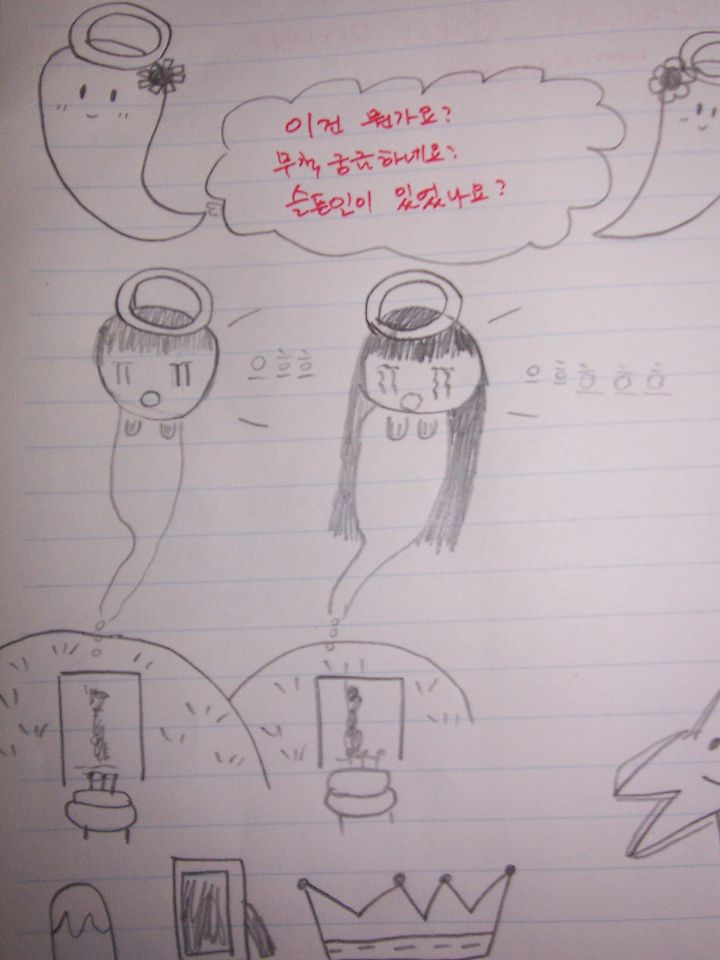 이건 뭔가요?
무척 궁금하네요.
슬픈일이 있었나요?
으흐흐
으흐흐흐흐